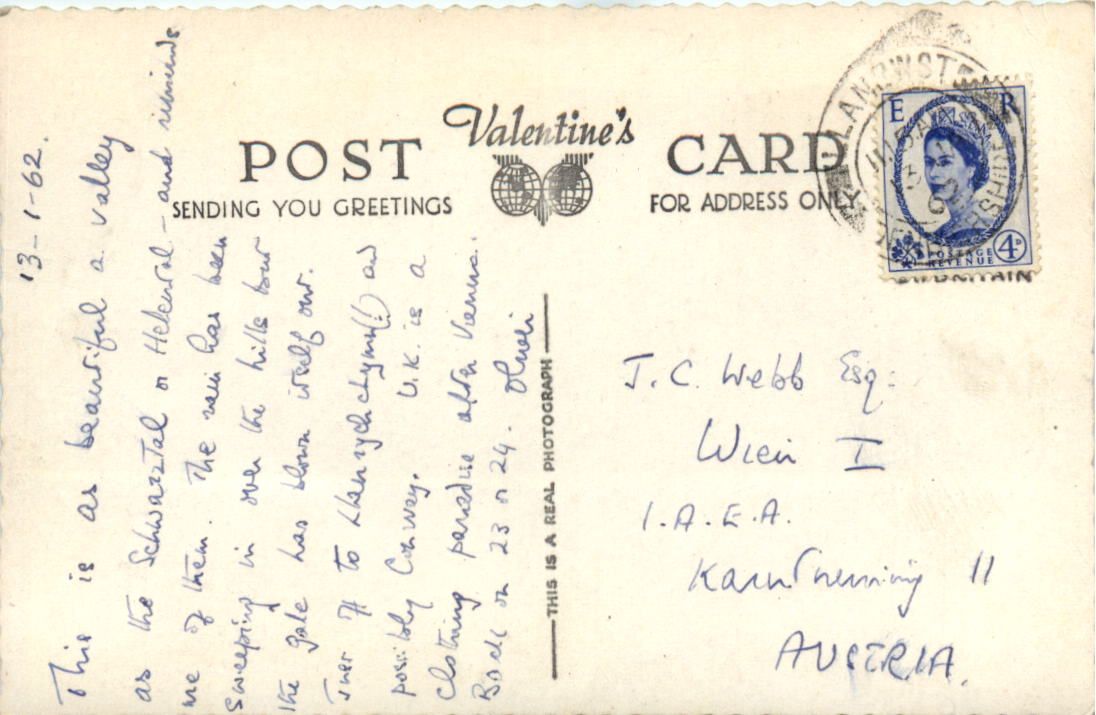 13-1-62.
This is as beautiful a valley
as the Schwarztal or Helental - and reminds
me of them. The rain has been
sweeping in over the hills but
the gale has blown itself out.
Just off to (?) and
possibly Conway. U.K. is a
clothing paradise after Vienna.
Back on 23 or 24.
POST
Valentine's
CARD
SENDING YOU GREETINGS
FOR ADDRESS ONLY
THIS IS A REAL PHOTOGRAPH
LLANRWST
E R
POSTAGE
REVENUE
4D
J.C. Webb Esq:
Wien I
I.A.E.A.
11
AUSTRIA.